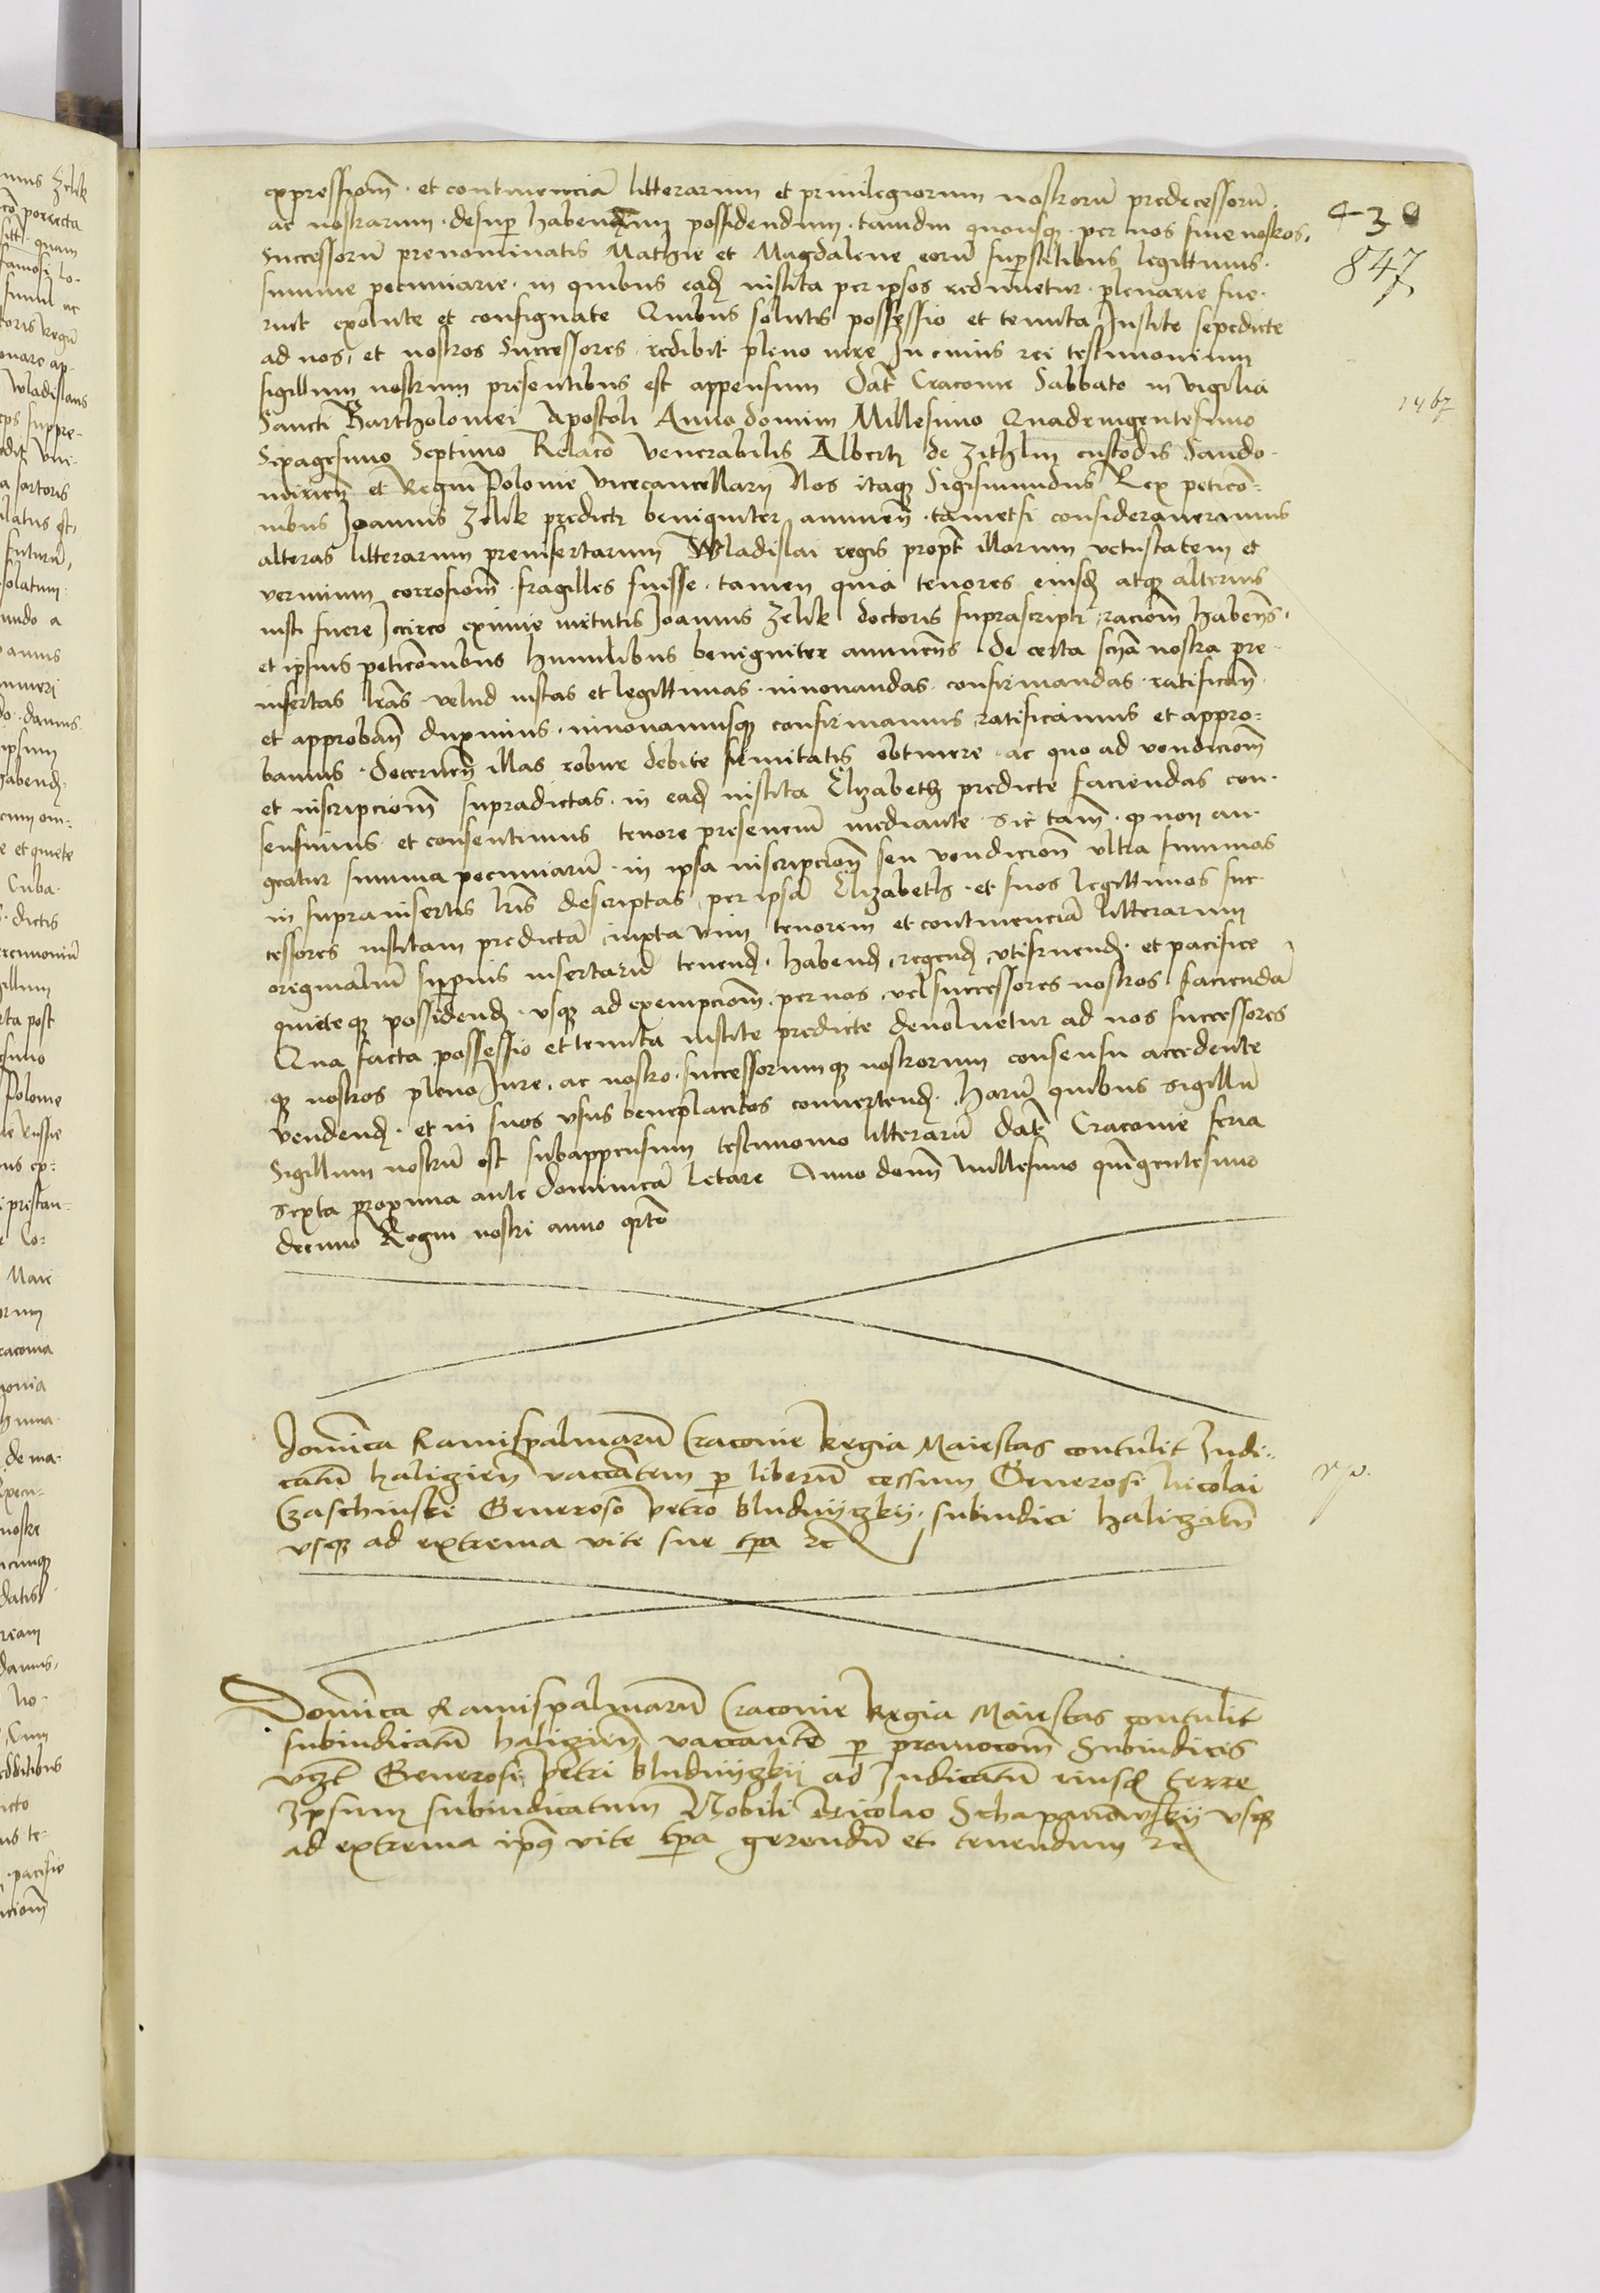 expressiom̄ · et continenciā litterarum et priuilegiorum nostrorū predecessorū
ac nostrarum · desup habendum possidendum · tamdiu quousq · per nos siue nostros
Successorū prenominatis Mathie et Magdalene eorū sup̄stitibus legittimis ·
summe pecuniarie · in quibus eadē instita per ipsos redimetur · plenarie fue-
rint exolute et consignate Quibus solutis possessio et tenuta Institte sepedicte
ad nos, et nostros Successores redibit pleno iure In cuius rei testimonium
sigillum nostrum presentibus est appensum Dat̄ Cracouie Sabbato in vigilia
Sancti Bartholomei Apostoli Anno domini Millesimo Quadringentesimo
Sexagesimo Septimo Relacō Venerabilis Alberti de Zichlin custodis Sando-
mirien̄ et Regni Polonie Vicecancellarij Nos itaq Sigismundus Rex peticō-
nibus Joannis Zelik predicti benigniter annuen̄ · tametsi considerauerimus
alteras litterarum preinsertarum Wladislai regis propt̄ illarum vetustatem et
vermium corrosiom̄ · fragilles fuisse · tamen quia tenores eiusdē atq alterius
iusti fuere Iccirco eximie virtutis Joannis Zelik doctoris suprascripti raciom̄ habens ·
et ipsius peticōnibus humilibus benigniter annuens De certa scn̄a nostra pre-
insertas lr̄as velud iustas et legittimas · innouandas · confirmandas · ratifican̄ ·
et approban̄ duximus · innouamusq confirmamus ratificamus et appro-
bamus · Decernen̄ illas robur debite firmitatis obtinere · ac quo ad vendiciom̄
et inscripciom̄ supradictas · in eadē instita Elizabeth predicte faciendas con-
sensimus et consentimus tenore presenciū mediante · sic tam̄ · q non au-
geatur summa pecuniarū · in ipsa inscripciom̄ seu vendiciom̄ vltra summas
in suprainsertis lr̄is descriptas per ipsā Elizabeth · et suos legittimos suc-
cessores institam predictā iuxta vim tenorem et continenciā litterarum
originaliū sup̄ius insertarū tenend · habend, regend, vtifruend · et pacifice
quieteq possidend · vsq ad exempciom̄ · per nos vel successores nostros faciendā
Qua facta possessio et tenuta institte predicte deuoluetur ad nos successores
q nostros pleno Iure, ac nostro · successorumq nostrorum consensu accedente
vendend · et in suos vsus beneplacitos conuertend · Harū quibus sigillū
Sigillum nostrū est subappensum testimonio litterarū Dat̄ Cracouie feria
sexta proxima ante dominicā Letare Anno domī millesimo quīgentesimo
decimo Regni nostri anno qrto
430
847
1467
Domīca Ramispalmarū Cracouie Regia Maiestas contulit Iudi-
catū Haliczien̄ vaccātem p liberū cessum Generosi Nicolai
Generoso Petro Bludniczkij · subiudici Haliczien̄
vsq ad extrema vite sue tp̄a ꝛc
Domīca Ramispalmarū Cracouie Regia Maiestas contulit
subiudicatū Haliczien̄ vaccante p promocōm̄ Subiudicis
vcz̄t Generosi Petri Bludniczkij ad Iudicatū eiusdē terre
Ipsum subiudicatum Nobili Nicolao vsq
ad extrema ip̄ius vite tp̄a gerendū et tenendum ꝛc